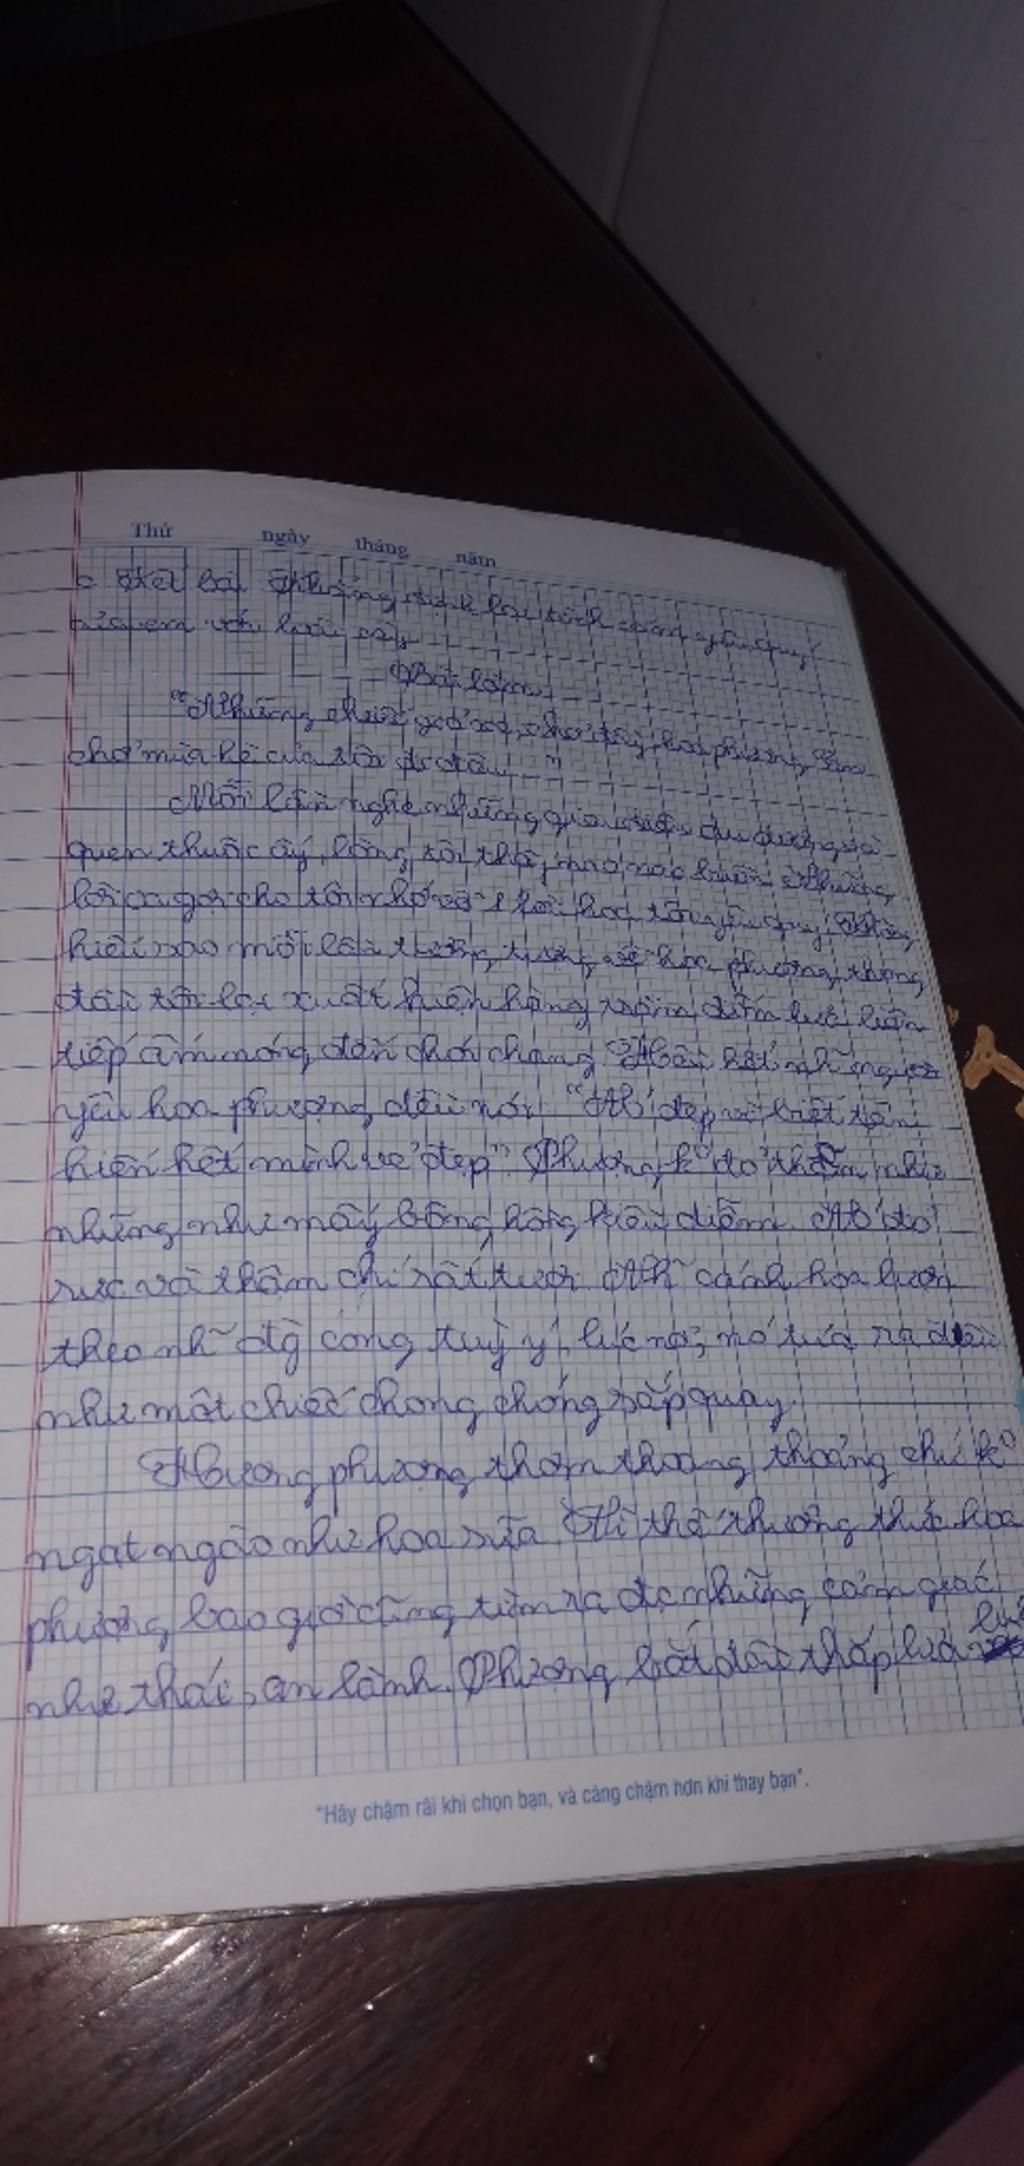 Thứ ngày tháng năm
c Kết bài Khẳng định lại tình cảm yêu quý
của em với loài cây
Bài làm
"Những chiếc giỏ xe chở đầy hoa phượng Em
chở mùa hè của tôi đi đâu ..."
Mỗi lần nghe những giai điệu du dương và
quen thuộc ấy, lòng tôi thấy nao nao buồn Những
lời ca gợi cho tôi nhớ về 1 loài hoa tôi yêu quý. Không
hiểu sao mỗi lần tưởng tượng về hoa phượng, trong
đầu tôi lại xuất hiện hàng
tiếp âm nóng đến chói chang Hầu hết nh~ người
yêu hoa phượng đều nói "Nó đẹp vì biết tận
hiến hết mình vẻ đẹp" Phượng k° đỏ thắm như
những như mấy bông hồng kiều diễm Nó đỏ
rực và thậm chí rất tươi Nh~ cánh hoa lượn
theo nh~ đg cong tuỳ ý, lúc nở, nó tựa ra đều
như một chiếc chong chóng sắp quay.
Hương phượng thơm thoang thoảng chứ k°
ngạt ngào như hoa sữa Vì thế thưởng thức hoa
phượng bao giờ cũng tìm ra đc những cảm giác
như thái, an lành. Phượng bắt đầu thắp lửa
"Hãy chậm rãi khi chọn bạn, và càng chậm hơn khi thay bạn".